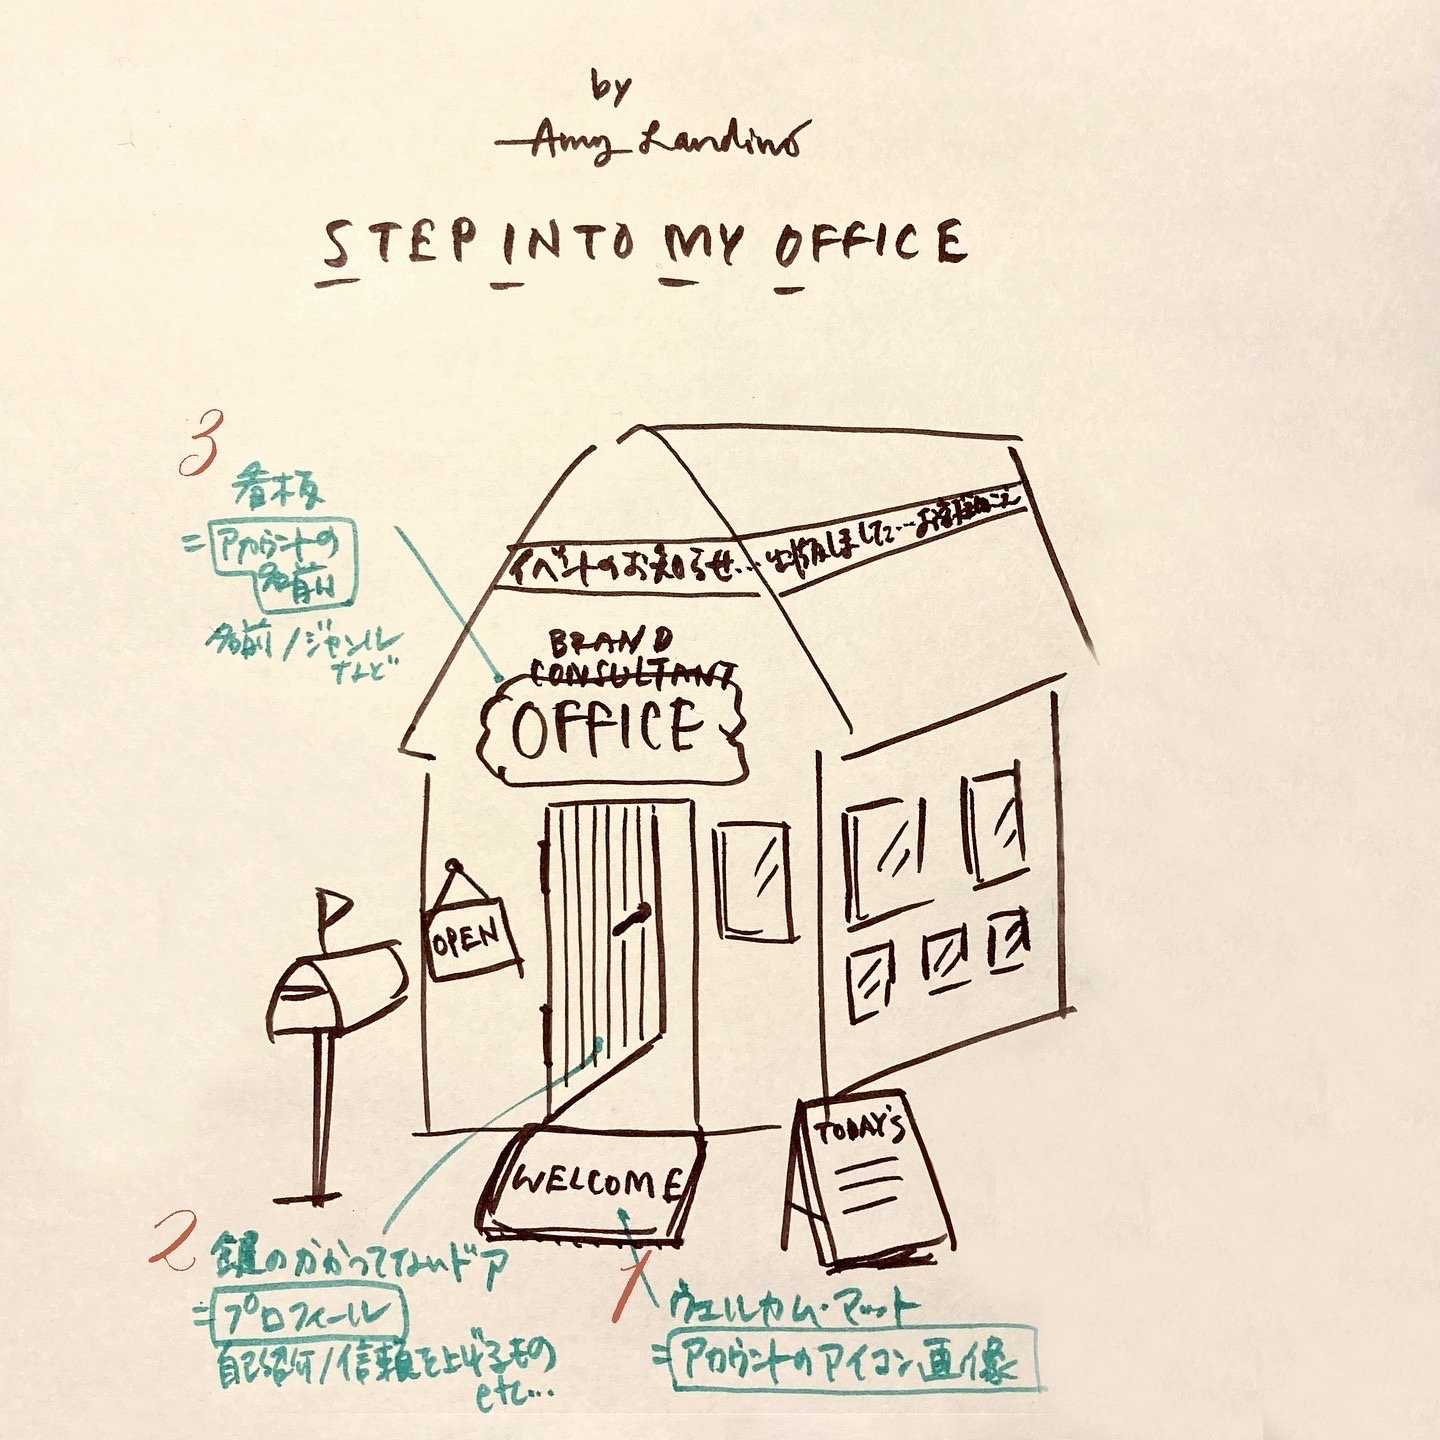 by
Amy Landino
STEP INTO MY OFFICE
3
看板
=アカウントの
名前
名前/ジャンル
など
イベントのお知らせ...出版しました...お客様のこえ
BRAND
CONSULTANT
OFFICE
OPEN
WELCOME
TODAY'S
2
鍵のかかってないドア
=プロフィール
自己紹介/信頼を上げるもの
etc...
1
ウェルカム・マット
=アカウントのアイコン画像